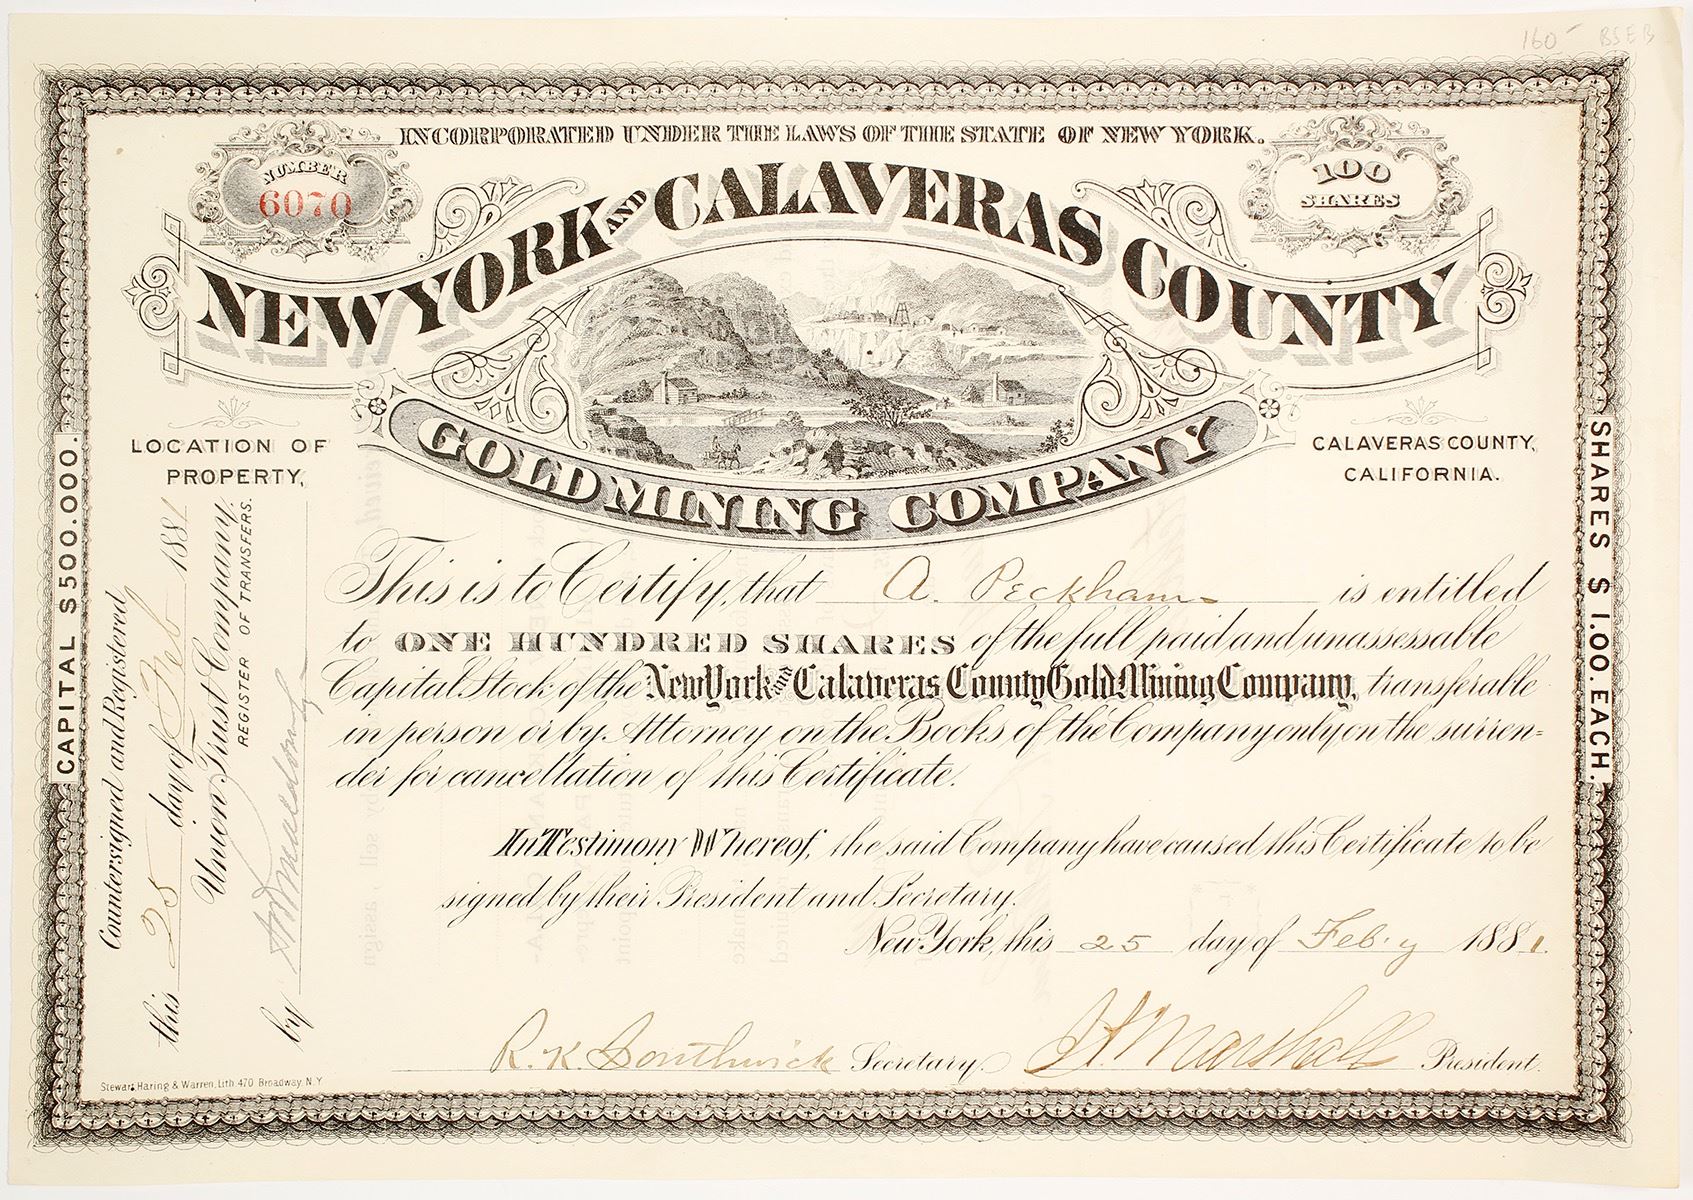 160 - BSEB
INCORPORATED UNDER THE LAWS OF THE STATE OF NEW YORK.
NUMBER
6070
100
SHARES
NEW YORK AND CALAVERAS COUNTY
GOLD MINING COMPANY
LOCATION OF
PROPERTY,
CALAVERAS COUNTY,
CALIFORNIA.
CAPITAL $500.000.
SHARES $1.00. EACH.
Countersigned and Registered
this 25 day of Feb 1881
Union Trust Company.
REGISTER OF TRANSFERS.
by
This is to Certify, that A. Peckham is entitled
to ONE HUNDRED SHARES of the full paid and unassessable
Capital Stock of the New York and Calaveras County Gold Mining Company, transferable
in person or by Attorney on the Books of the Company only on the surren=
der for cancellation of this Certificate.
In Testimony Whereof, the said Company have caused this Certificate to be
signed by their President and Secretary.
New York, this 25 day of Feb.y 1881.
R. K. Southwick Secretary. Marshall President.
Stewart, Haring & Warren, Lith 470 Broadway N.Y